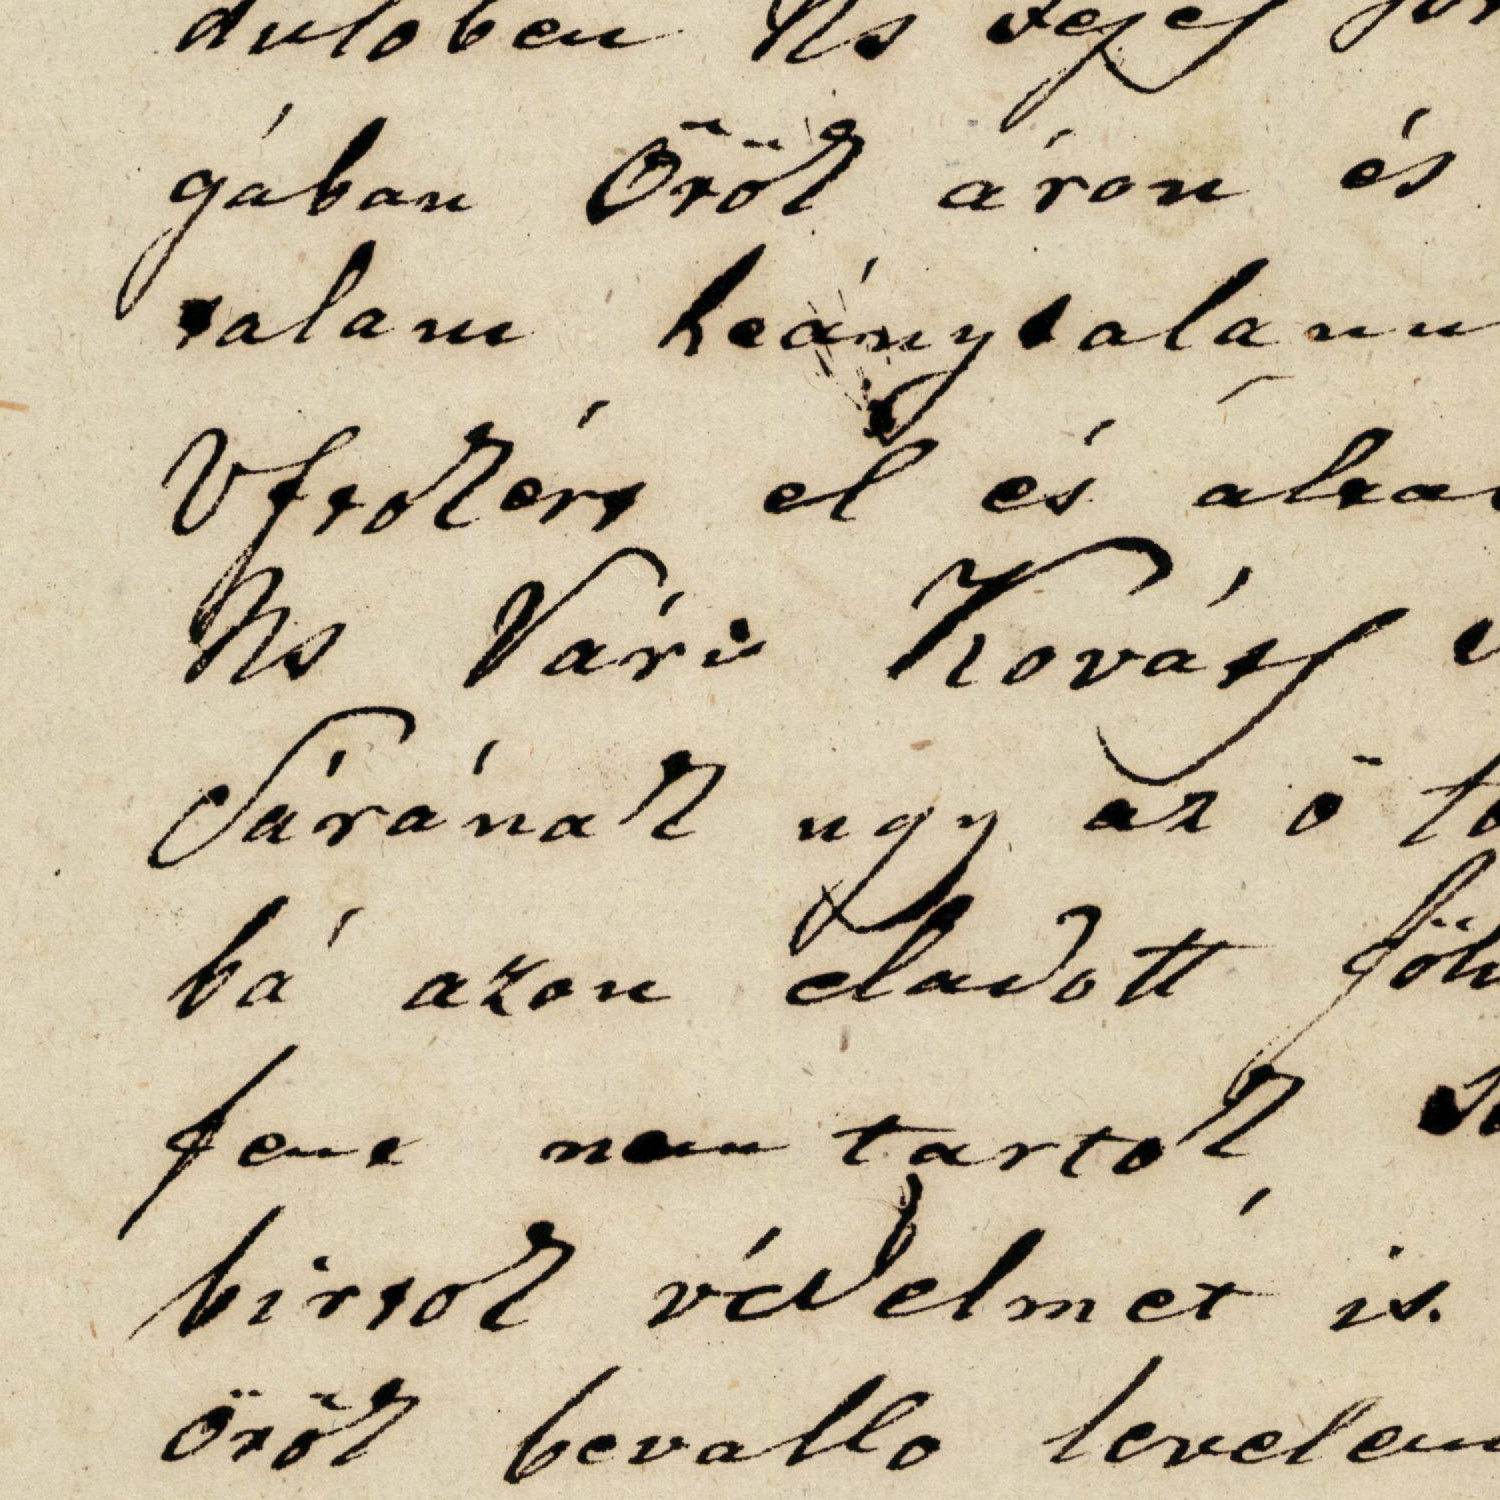 dulöben Ns
gában Öröк áron és
talam heánytalanu
Vfsokért el és álta
Ns Vári Kováts
Sárának ugy az ö to
bá azon eladott föl
fent nem tartok
birtok védelmét is.
Örök bevallo levelem